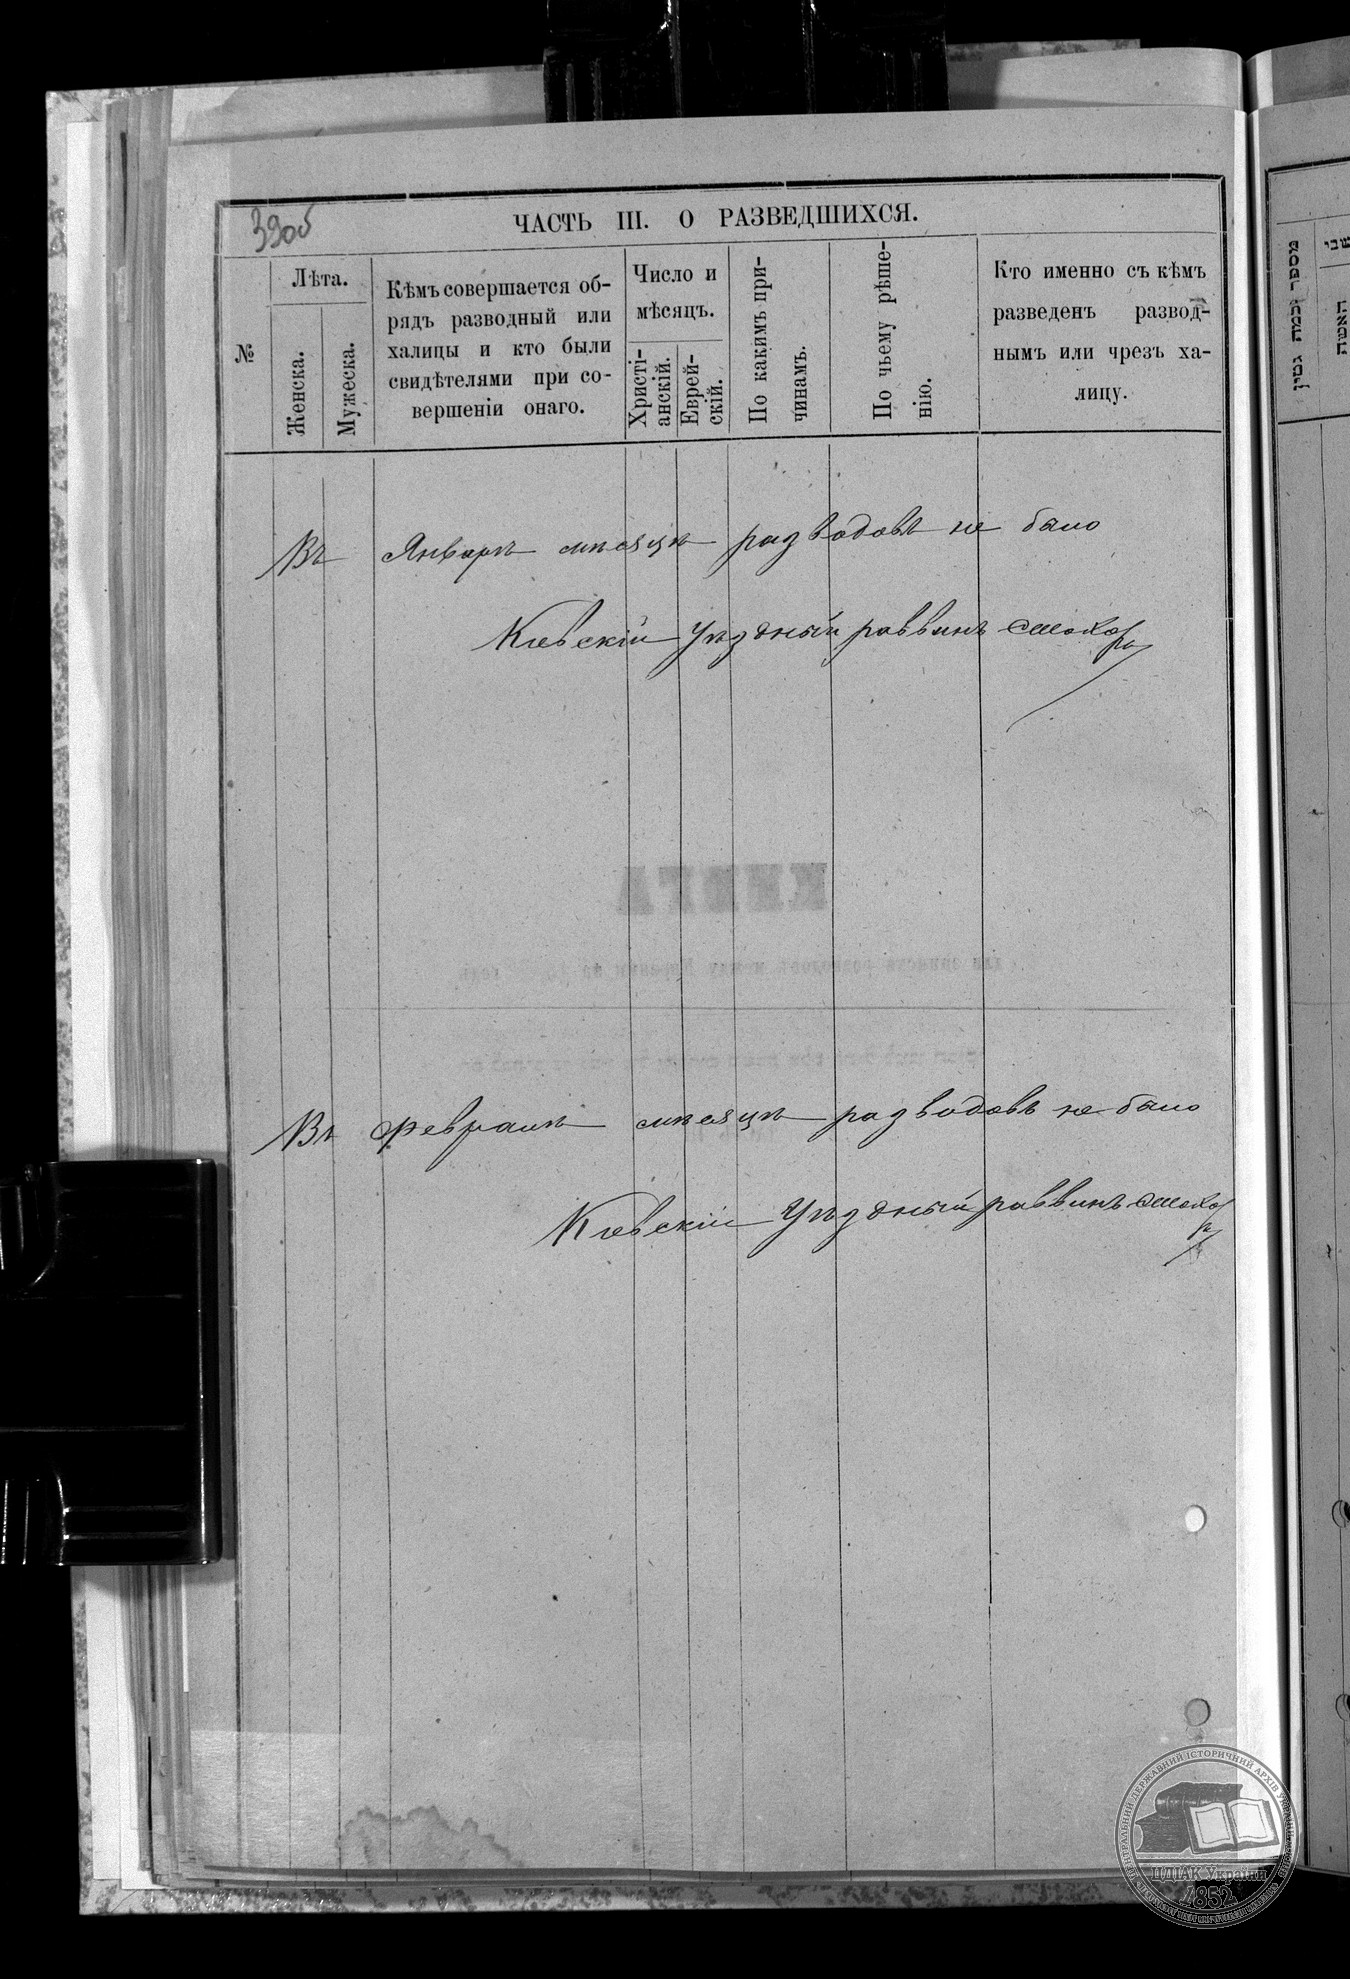 39об
ЧАСТЬ III. О РАЗВЕДШИХСЯ.
№
Лѣта.
Женска.
Мужеска.
Кѣмъ совершается об-
рядъ разводный или
халицы и кто были
свидѣтелями при со-
вершеніи онаго.
Число и
мѣсяцъ.
Христі-
анскій.
Еврей-
скій.
По какимъ при-
чинамъ.
По чьему рѣше-
нію.
Кто именно съ кѣмъ
разведенъ развод-
нымъ или чрезъ ха-
лицу.
Въ Январѣ мѣсяцѣ разводовъ не было
Кіевскій Уѣздный раввинъ
Въ Февралѣ мѣсяцѣ разводовъ не было
Кіевскій Уѣздный раввинъ
КНИГА
מספר וכמה גטין
האשה
ЦДІАК України
1852